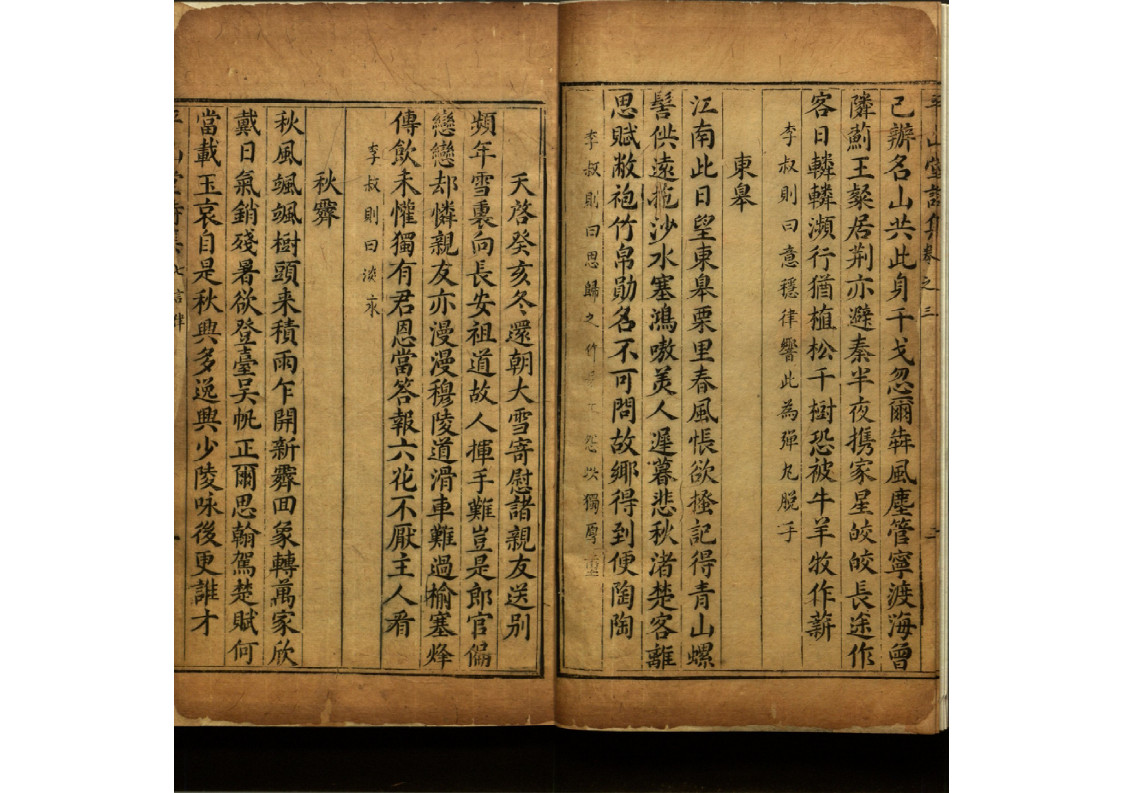 平山堂詩集卷之三 二
己辦名山共此身干戈忽爾犇風塵管寧渡海曾
隣薊王粲居荆亦避秦半夜携家星皎皎長途作
客日轔轔瀕行猶植松千樹恐被牛羊牧作薪
李叔則曰意穩律響此為彈丸脫手
東皋
江南此日望東皋栗里春風悵欲搔記得青山螺
髻供遠拖沙水塞鴻嗷美人遲暮悲秋渚楚客離
思賦敝袍竹帛勛名不可問故鄉得到便陶陶
李叔則曰思歸之作 怨次獨厚
天啓癸亥冬還朝大雪寄慰諸親友送別
頻年雪裏向長安祖道故人揮手難豈是郎官偏
戀戀却憐親友亦漫漫穆陵道滑車難過榆塞烽
傳飲未懽獨有君恩當答報六花不厭主人看
李叔則曰淡永
秋霽
秋風颯颯樹頭来積雨乍開新霽回象轉萬家欣
戴日氣銷殘暑欲登臺吳帆正爾思翰駕楚賦何
當載玉哀自是秋興多逸興少陵咏後更誰才
七言律